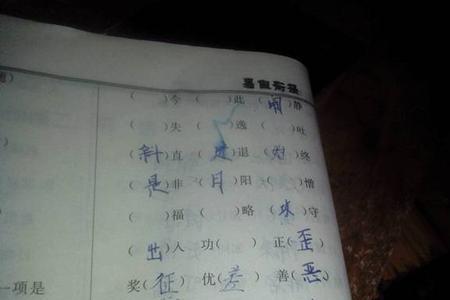 ( )今 ( )此 (闹)静
( )失 ( )逸 ( )吐
(斜)直 (进)退 ( )终
(是)非 (月)阳 ( )憎
( )福 ( )略 ( )守
(出)入 功( ) 正(歪)
奖(征) 优(差) 善(恶)
一项是